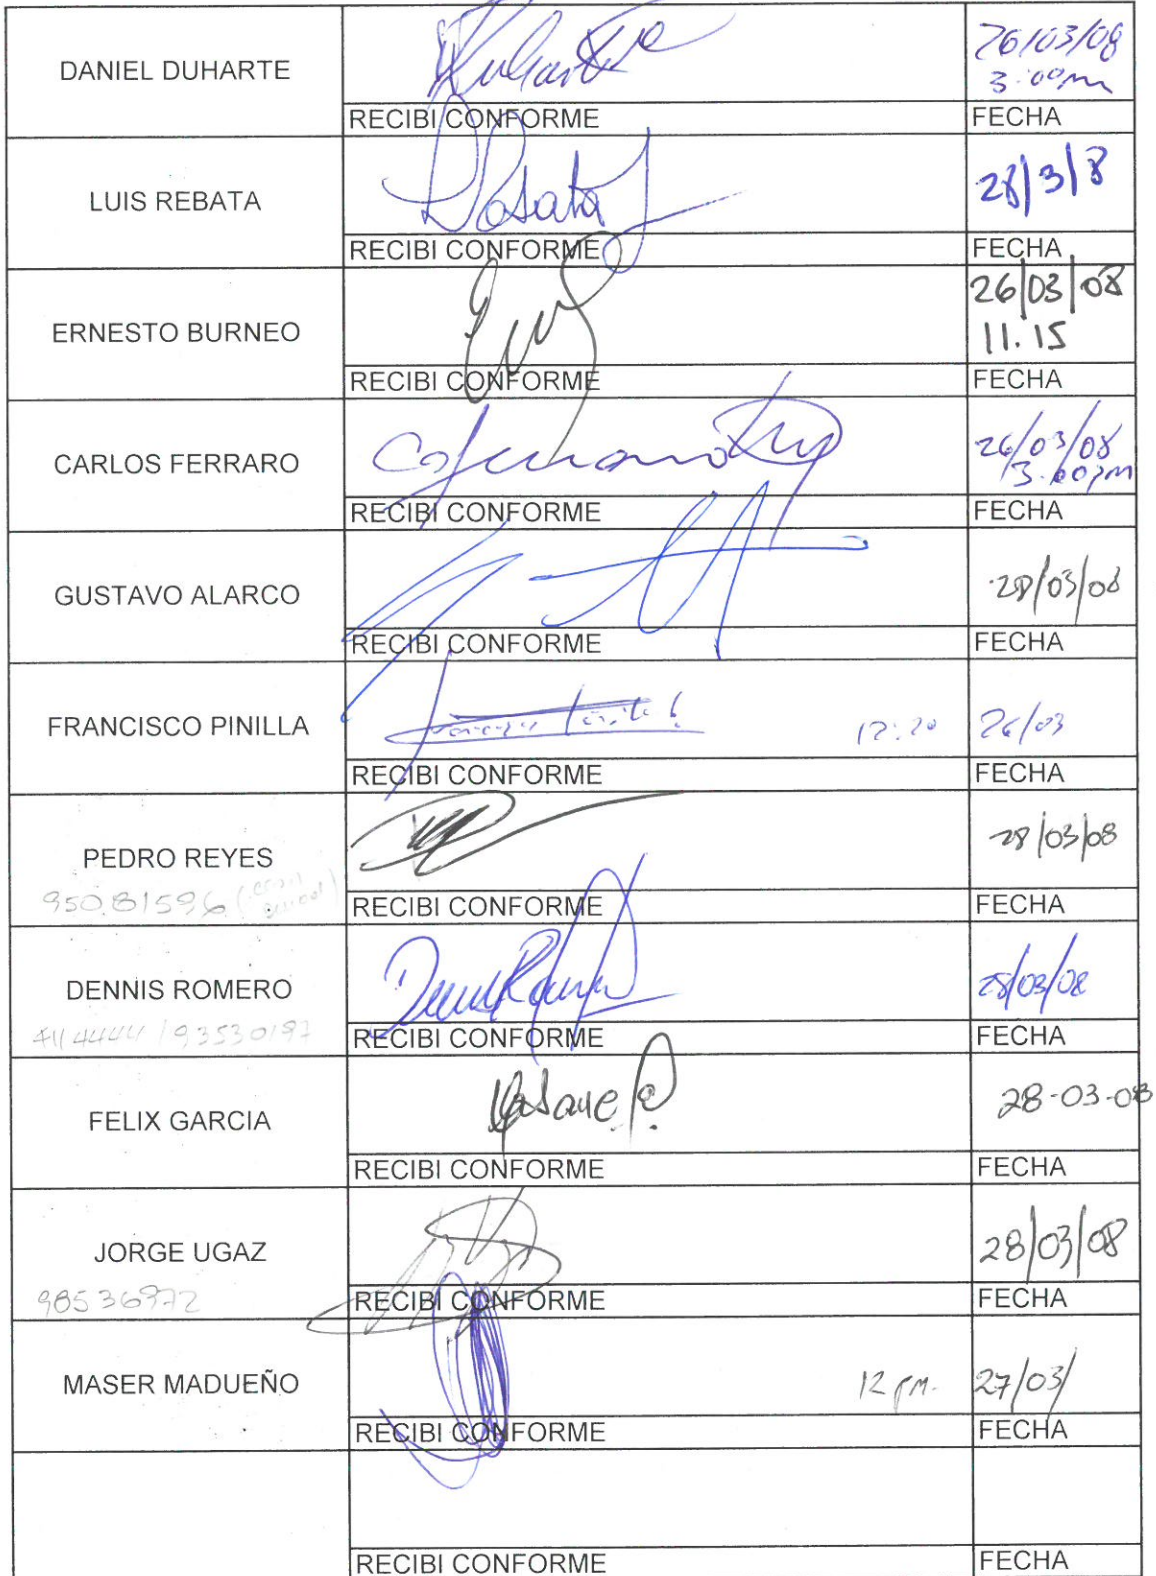 DANIEL DUHARTE
26/03/08
3:00pm
RECIBI CONFORME
FECHA
LUIS REBATA
28/3/8
RECIBI CONFORME
FECHA
ERNESTO BURNEO
26/03/08
11.15
RECIBI CONFORME
FECHA
CARLOS FERRARO
26/03/08
3.00pm
RECIBI CONFORME
FECHA
GUSTAVO ALARCO
28/03/08
RECIBI CONFORME
FECHA
FRANCISCO PINILLA
12:20
26/03
RECIBI CONFORME
FECHA
PEDRO REYES
28/03/08
950.81596
RECIBI CONFORME
FECHA
DENNIS ROMERO
28/03/08
4114444 / 93530197
RECIBI CONFORME
FECHA
FELIX GARCIA
28-03-08
RECIBI CONFORME
FECHA
JORGE UGAZ
28/03/08
98536972
RECIBI CONFORME
FECHA
MASER MADUEÑO
12 pm.
27/03/
RECIBI CONFORME
FECHA
RECIBI CONFORME
FECHA